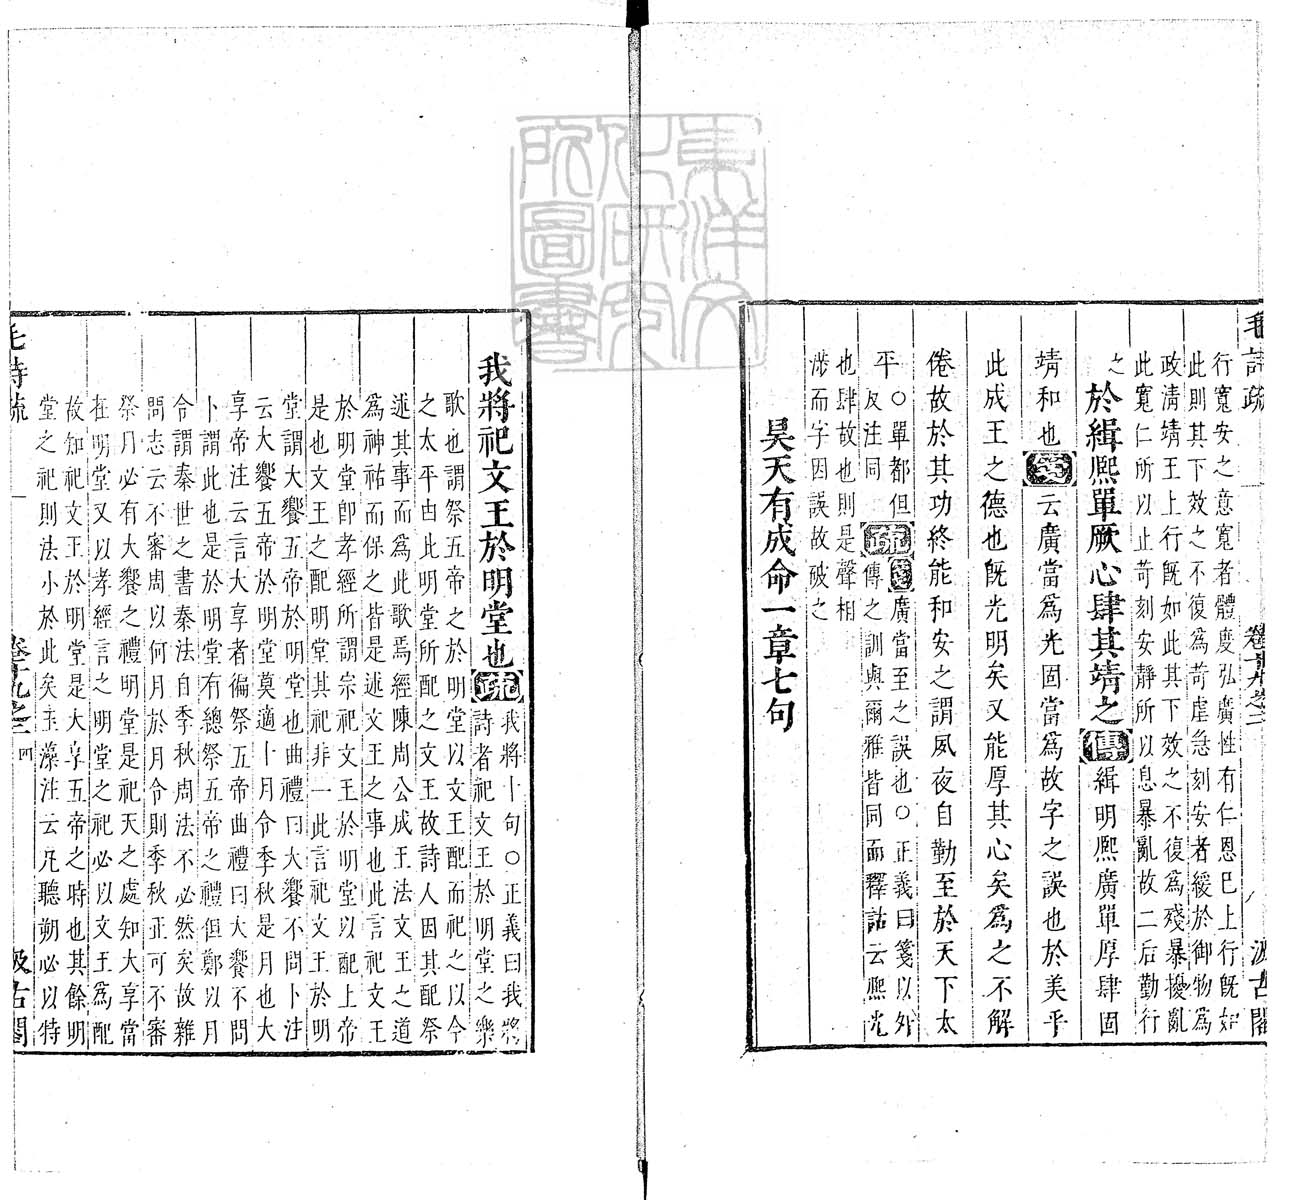 毛詩疏 卷十九之二 八 汲古閣
行寬安之意寬者體度弘廣性有仁恩巳上行旣如
此則其下效之不復爲苛虐急刻安者緩於御物爲
政清靖王上行旣如此其下效之不復爲殘暴擾亂
此寬仁所以止苛刻安靜所以息暴亂故二后勤行
之
於緝熙單厥心肆其靖之傳緝明熙廣單厚肆固
靖和也箋云廣當爲光固當爲故字之誤也於美乎
此成王之德也旣光明矣又能厚其心矣爲之不解
倦故於其功終能和安之謂夙夜自勤至於天下太
平○單都但
反注同
疏箋廣當至之誤也○正義曰箋以外
傳之訓與爾雅皆同而釋詁云熙光
也肆故也則是聲相
涉而字因誤故破之
昊天有成命一章七句
東洋文化研究所圖書
我將祀文王於明堂也疏我將十句○正義曰我將
詩者祀文王於明堂之樂
歌也謂祭五帝之於明堂以文王配而祀之以今
之太平由此明堂所配之文王故詩人因其配祭
述其事而爲此歌焉經陳周公成王法文王之道
爲神祐而保之皆是述文王之事也此言祀文王
於明堂卽孝經所謂宗祀文王於明堂以配上帝
是也文王之配明堂其祀非一此言祀文王於明
堂謂大饗五帝於明堂也曲禮曰大饗不問卜注
云大饗五帝於明堂莫適卜月令季秋是月也大
享帝注云言大享者徧祭五帝曲禮曰大饗不問
卜謂此也是於明堂有總祭五帝之禮但鄭以月
令謂秦世之書秦法自季秋周法不必然矣故雜
問志云不審周以何月於月令則季秋正可不審
祭月必有大饗之禮明堂是祀天之處知大享當
在明堂又以孝經言之明堂之祀必以文王爲配
故知祀文王於明堂是大享五帝之時也其餘明
堂之祀則法小於此矣玉藻注云凡聽朔必以特
毛詩疏 卷十九之二 四 汲古閣